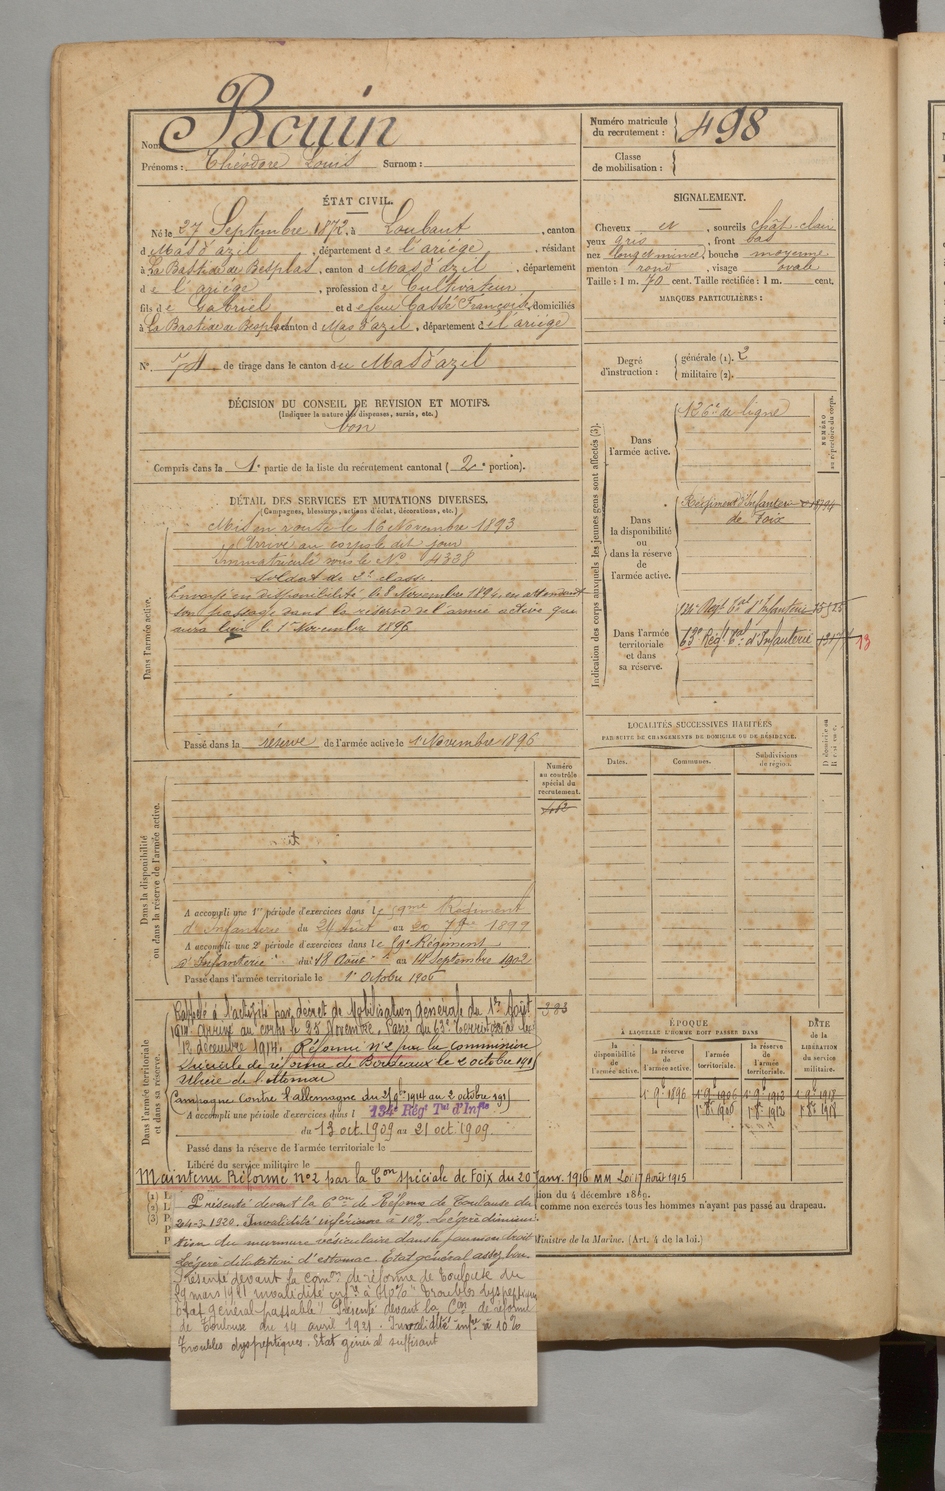 Nom Bouin
Prénoms : Théodore Louis Surnom :
ÉTAT CIVIL.
Né le 27 Septembre 1872, à Loubaut, canton
d Mas d'azil, département de l'ariège, résidant
à La Bastide de Besplas, canton d Mas d'azil, département
de l'ariège, profession de Cultivateur
fils de Gabriel et de feue Françoise, domiciliés
à La Bastide de Besplas canton d Mas d'azil, département de l'ariège
N° 74 de tirage dans le canton du Mas d'azil
DÉCISION DU CONSEIL DE REVISION ET MOTIFS.
(Indiquer la nature des dispenses, sursis, etc.)
bon
Compris dans la 1e partie de la liste du recrutement cantonal (2e portion).
DÉTAIL DES SERVICES ET MUTATIONS DIVERSES.
(Campagnes, blessures, actions d'éclat, décorations, etc.)
Dans l'armée active.
Mis en route le 16 Novembre 1893
Arrivé au corps le dit jour
Immatriculé sous le N° 4338
Soldat de 2e classe.
Envoyé en disponibilité le 8 Novembre 1894, en attendant
son passage dans la réserve de l'armée active qui
aura lieu le 1er Novembre 1896
Passé dans la réserve de l'armée active le 1 Novembre 1896
Numéro
au contrôle
spécial du
recrutement.
Dans la disponibilité
ou dans la réserve de l'armée active.
A accompli une 1re période d'exercices dans le 59me Régiment
d'Infanterie du 24 Août au 20 7bre 1899
A accompli une 2e période d'exercices dans le 59e Régiment
d'Infanterie du 18 Août au 14 Septembre 1902
Passé dans l'armée territoriale le 1er Octobre 1906
Dans l'armée territoriale
et dans sa réserve.
Rappelé à l'activité par décret de Mobilisation générale du 1er Août
1914. Arrivé au corps le 25 Novembre. Passé au 63e Territorial le
12 décembre 1914. Réformé n°2 par la commission
spéciale de réforme de Bordeaux le 2 octobre 1915
Ulcère de l'estomac
Campagne contre l'allemagne du 25 9bre 1914 au 2 octobre 1915
A accompli une période d'exercices dans l 134e Régt Tal d'Infie
du 13 oct. 1909 au 21 oct. 1909
Passé dans la réserve de l'armée territoriale le
Libéré du service militaire le
Maintenu Réformé n°2 par la Con spéciale de Foix du 20 Janv. 1916 MM Loi 17 Août 1915
Présenté devant la Con de Réforme de Toulouse du
24-3-1920. Invalidité inférieure à 10%. Légère diminu-
tion du murmure vésiculaire dans le poumon droit
Légère dilatation d'estomac. Etat général assez bon
Présenté devant la Comon de réforme de Toulouse du
19 mars 1921 invalidité infre à 10% "Troubles dyspeptiques
Etat général passable" Présenté devant la Con de réforme
de Toulouse du 14 avril 1921. Invalidité infre à 10%
Troubles dyspeptiques. Etat général suffisant
Numéro matricule
du recrutement : 498
Classe
de mobilisation :
SIGNALEMENT.
Cheveux et, sourcils chât-clair
yeux gris, front bas
nez long et mince, bouche moyenne
menton rond, visage ovale
Taille : 1 m. 70 cent. Taille rectifiée : 1 m. cent.
MARQUES PARTICULIÈRES :
Degré
d'instruction :
générale (1). 2
militaire (2).
Indication des corps auxquels les jeunes gens sont affectés (3).
NUMÉRO
au répertoire du corps.
Dans
l'armée active.
126e de ligne
Dans
la disponibilité
ou
dans la réserve
de
l'armée active.
Régiment d'Infanterie
de Foix
Dans l'armée
territoriale
et dans
sa réserve.
134e Régt Tal d'Infanterie
63e Régt Tal d'Infanterie
13
LOCALITÉS SUCCESSIVES HABITÉES
PAR SUITE DE CHANGEMENTS DE DOMICILE OU DE RÉSIDENCE.
Dates.
Communes.
Subdivisions
de région.
D domicile ou
R résidence.
ÉPOQUE
A LAQUELLE L'HOMME DOIT PASSER DANS
DATE
de la
LIBÉRATION
du service
militaire.
la
disponibilité
de
l'armée active.
la réserve
de
l'armée active.
l'armée
territoriale.
la réserve
de
l'armée
territoriale.
1er 9bre 1896 1er 9bre 1906 1er 9bre 1912 1er 9bre 1918
1er 8bre 1906 1er 8bre 1912 1er 8bre 1918
tion du 4 décembre 1889.
comme non exercés tous les hommes n'ayant pas passé au drapeau.
Ministre de la Marine. (Art. 4 de la loi.)